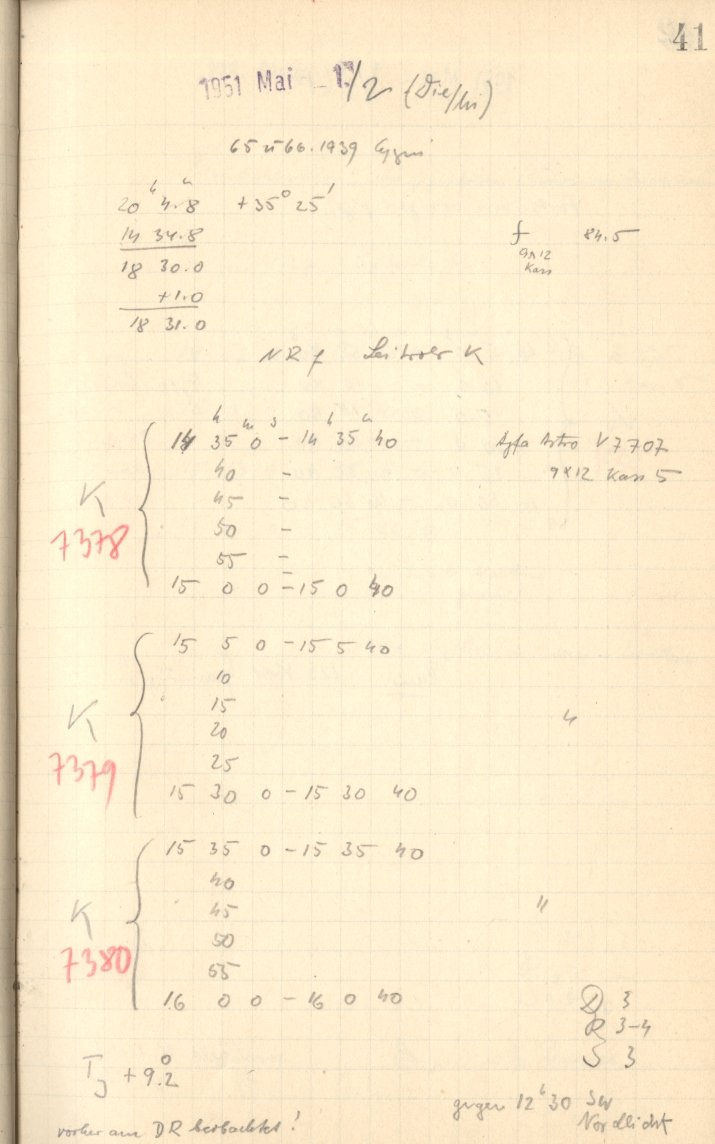 41
1951 Mai 1/2 (Die/Mi)
65 u 66.1939 Cygni
20 h 4.8 m +35° 25'
14 34.8
18 30.0
+1.0
18 31.0
f 84.5
9x12
Kass
NR f K
h m s h m
14 35 0 - 14 35 40
40 -
45 -
50 -
55 -
15 0 0 - 15 0 40
K
7378
Agfa Astro V7707
9x12 Kass 5
15 5 0 - 15 5 40
10
15
20
25
15 30 0 - 15 30 40
K
7379
"
15 35 0 - 15 35 40
40
45
50
55
16 0 0 - 16 0 40
K
7380
"
D 3
R 3-4
S 3
TJ +9.2°
gegen 12 h 30 SW
Nordlicht
vorher am DR beobachtet!